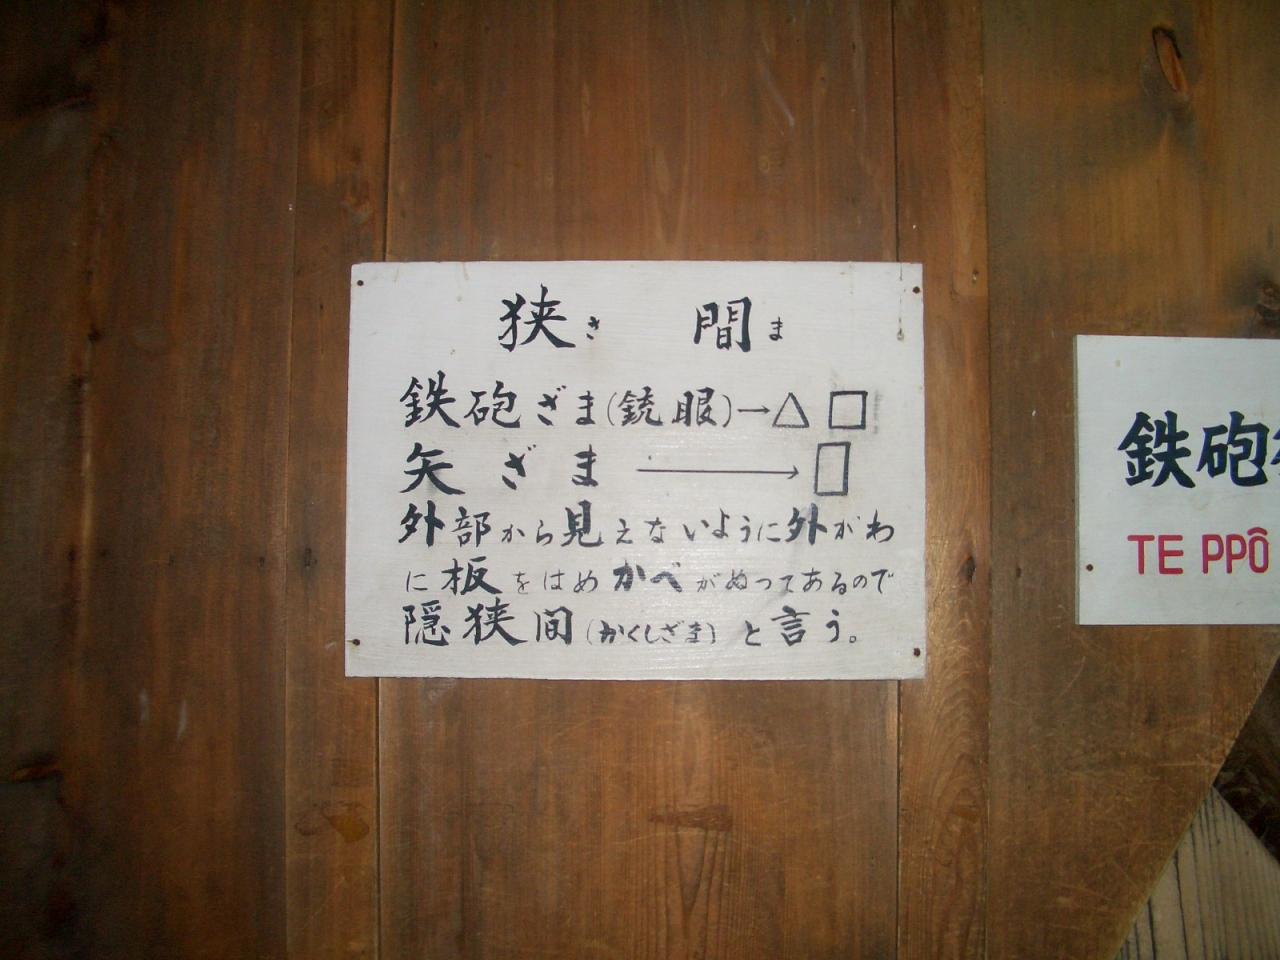 狭さ 間ま
鉄砲ざま(銃眼)→△ □
矢ざま → ▯
外部から見えないように外がわ
に板をはめかべがぬってあるので
隠狭間(かくしざま)と言う。
鉄砲
TE PPÔ